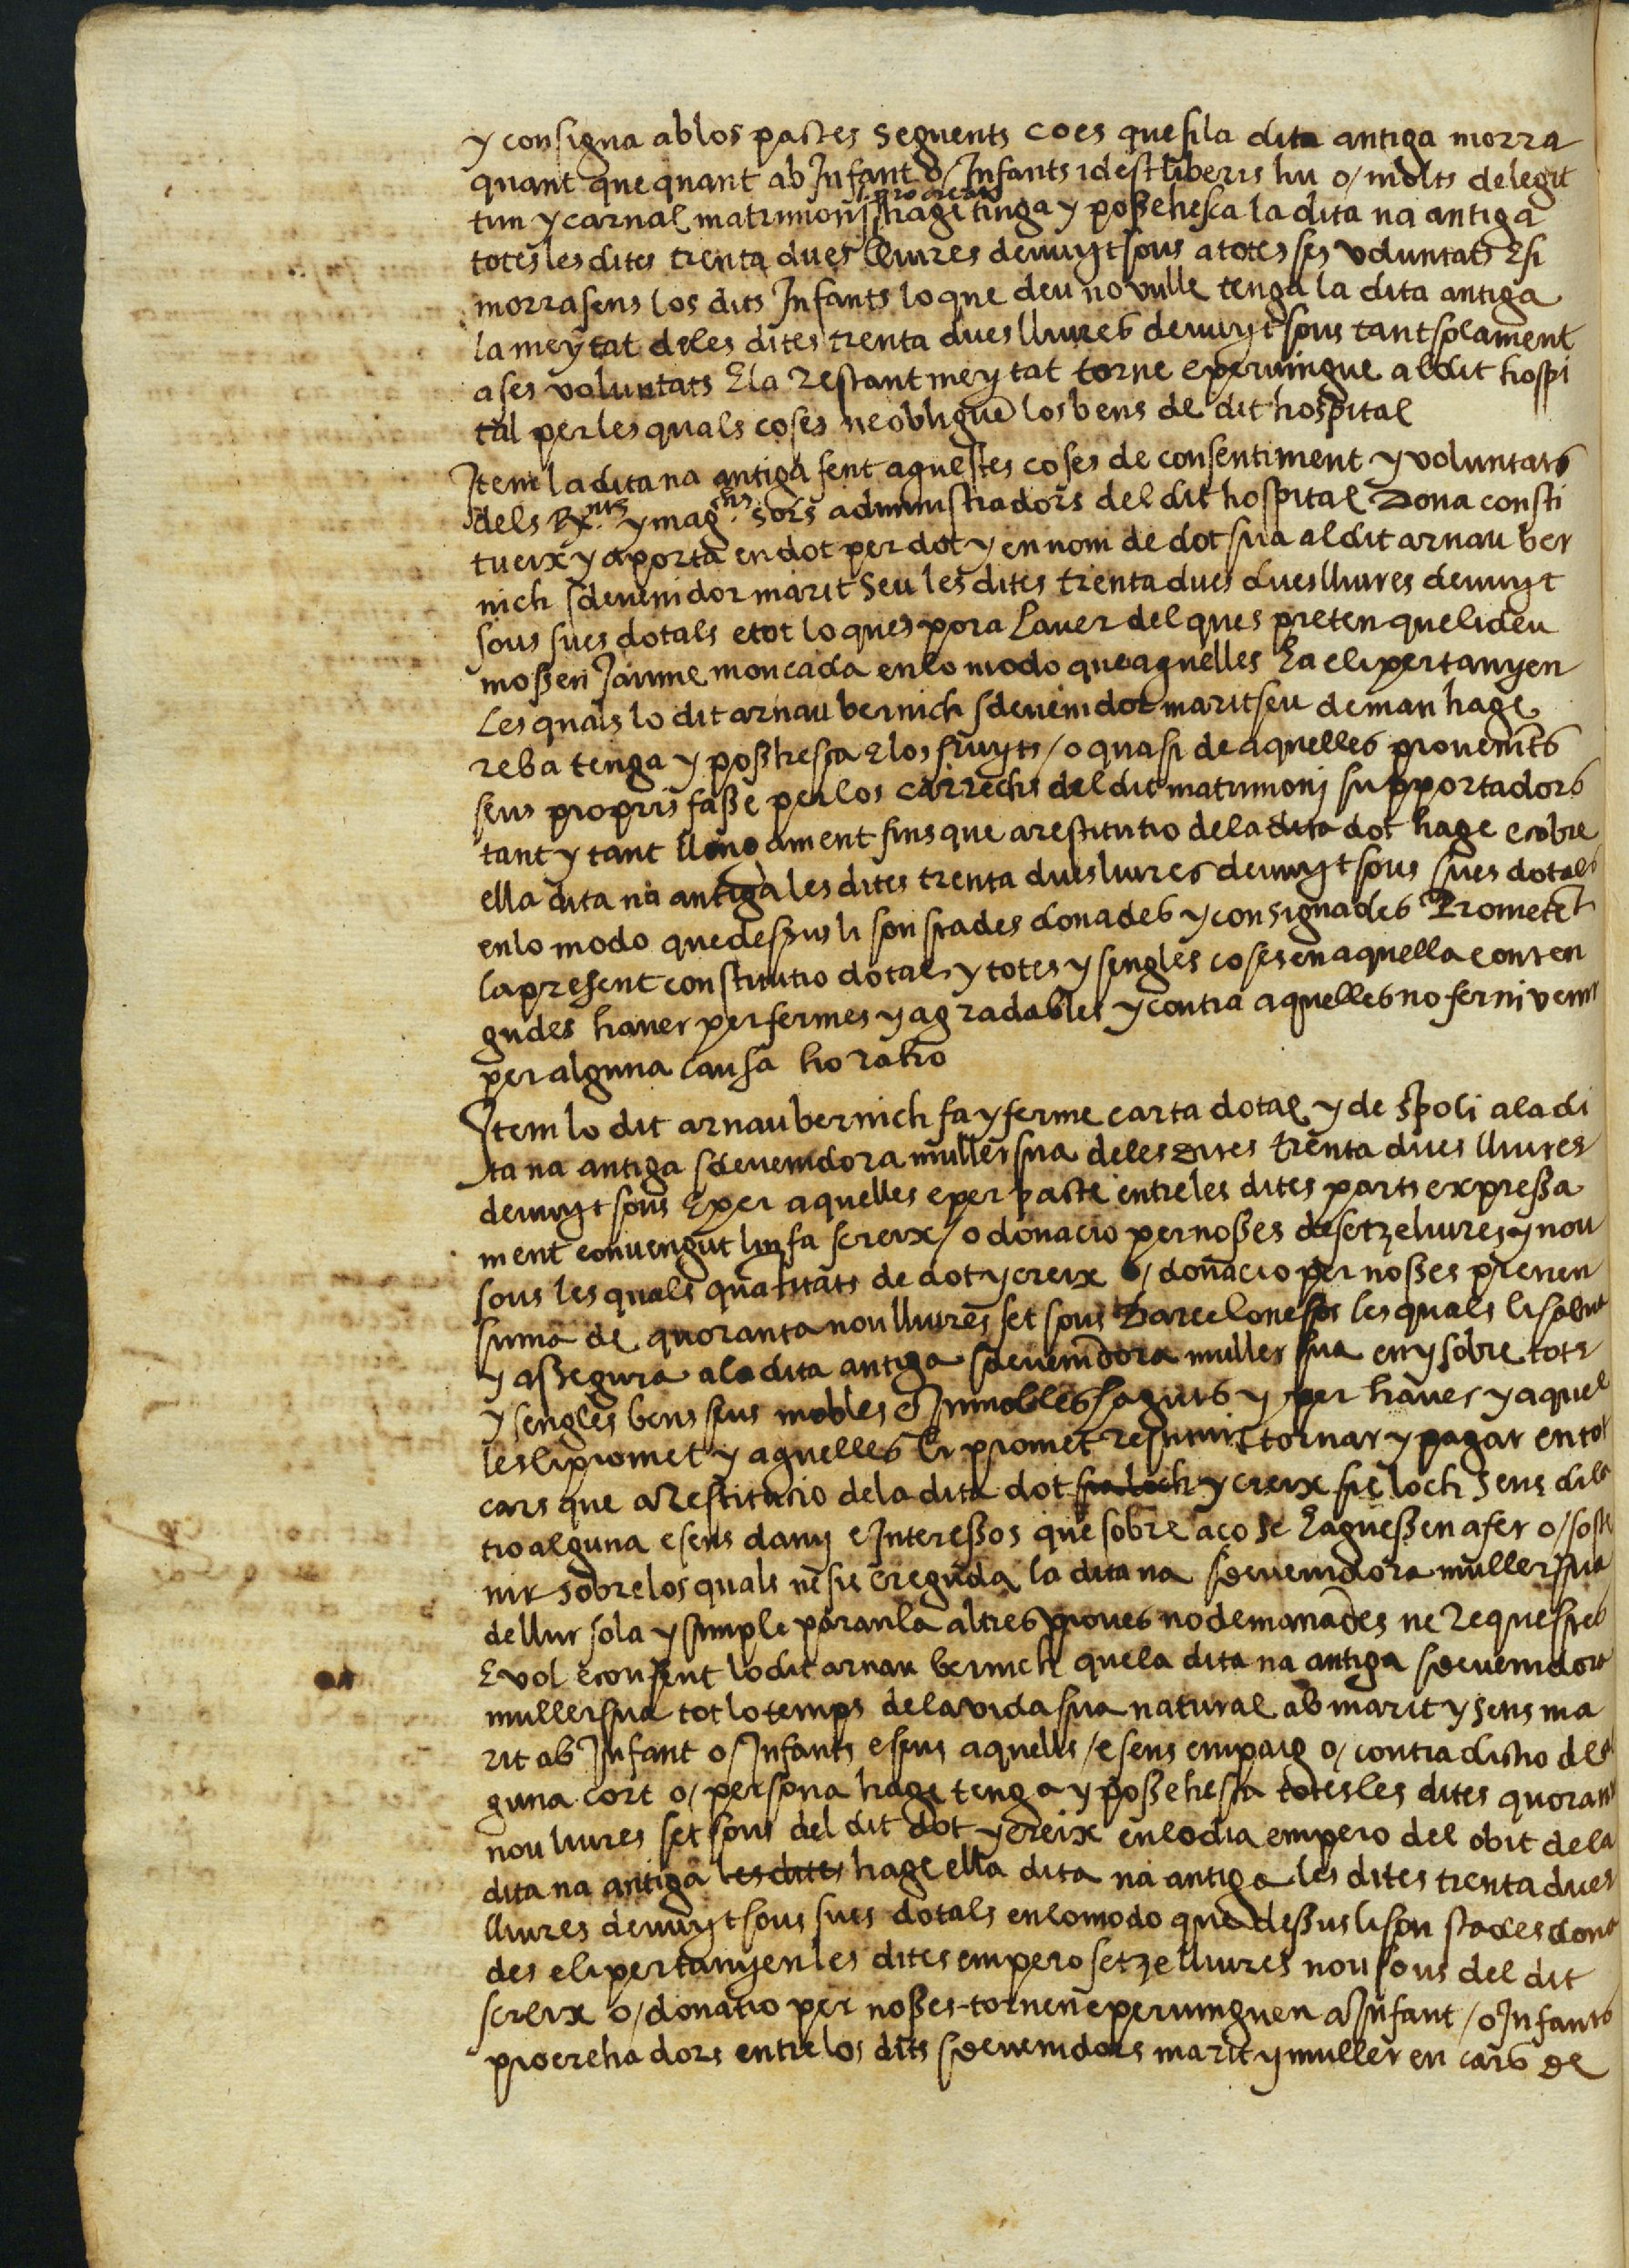 y consigna ab los pactes seguents ço es que si la dita antiga morra
quant que quant ab Infant o/ Infants id est liberis hu o/ molts de legit
tim y carnal matrimonj procreats hage tinga y possehesca la dita na antiga
totes les dites trenta dues lliures devuyt sous a totes ses voluntats E si
morra sens los dits Infants lo que deu no vulle tenga la dita antiga
la meytat de les dites trenta dues lliures devuyt sous tant solament
a ses voluntats E la restant meytat torne e pervingue al dit hospi
tal per les quals coses ne obligue los bens del dit hospital
Item la dita na antiga fent aquestes coses de consentiment y voluntats
dels Rx.nts y mag.chs sors administradors del dit hospital Dona consti
tueix y aporta en dot per dot y en nom de dot sua al dit arnau ber
nich sdevenidor marit seu les dites trenta dues dues lliures devuyt
sous sues dotals e tot lo ques pora haver del ques preten que li deu
mossen Jaume moncada en lo modo que aquelles ha e li pertanyen
Les quals lo dit arnau bernich sdevenidor marit seu deman hage
reba tenga y possehesca E los fruyts / o quasi de aquelles provenints
seus propris fasse per los carrechs del dit matrimonj supportadors
tant y tant llongament fins que a restitutio de la dita dot hage e cobre
ella dita na antiga les dites trenta dues liures devuyt sous sues dotals
en lo modo que dessus li son stades donades y consignades Prometet
la present constitutio dotal y totes y sengles coses en aquella conten
gudes haver per fermes y agradables y contra aquelles no fer ni venir
per alguna causa ho ratio
Item lo dit arnau bernich fa y ferme carta dotal y de spoli a la di
ta na antiga sdevenidora muller sua de les dites trenta dues lliures
devuyt sous E per aquelles e per pacte entre les dites parts expressa
ment convengut lin fa screix / o donacio per nosses de setze liures y nou
sous les quals quatitats de dot y creix o/ donacio per nosses prenen
suma de quoranta nou lliures set sous Barcelonesos les quals li salva
y assegura a la dita antiga sdevenidora muller sua en y sobre tots
y sengles bens seus mobles e Inmobles haguts y per haver y aquel
les li promet y aquelles li promet restituir tornar y pagar en tot
cars que a restitucio de la dita dot sia loch y creix sie loch sens dila
tio alguna e sens dany e Interessos que sobre aço se haguessen a fer o/ soste
nir sobre los quals ne sie creguda la dita na sdevenidora muller sua
de llur sola y simple paraula altres proves no demanades ne requestes
E vol e consent lo dit arnau bernich que la dita na antiga sdevenidora
muller sua tot lo temps de la vida sua natural ab marit y sens ma
rit ab Infant o/ Infants e sens aquells / e sens empaig o/ contradictio del
guna cort o/ persona hage tenga y possehesca totes les dites quorant
nou liures set sous del dit dot y creix en lo dia empero del obit de la
dita na antiga les dites hage ella dita na antiga les dites trenta dues
lliures devuyt sous sues dotals en lo modo que dessus li son stades dona
des e li pertanyen les dites empero setze lliures nou sous del dit
screix o/ donatio per nosses tornen e pervinguen a Infant / o Infants
procrehadors entre los dits sdevenidors marit y muller en cars de